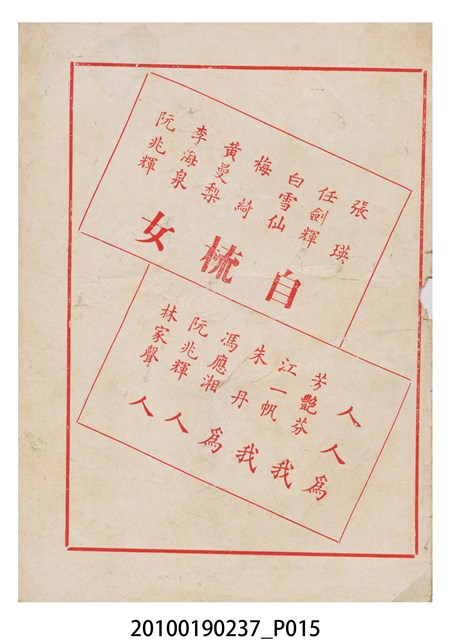 張瑛
任劍輝
白雪仙
梅綺
黃曼梨
李海泉
阮兆輝
自梳女
人人爲我我爲人人
芳艷芬
江一帆
朱丹
馮應湘
阮兆輝
林家聲
20100190237_P015